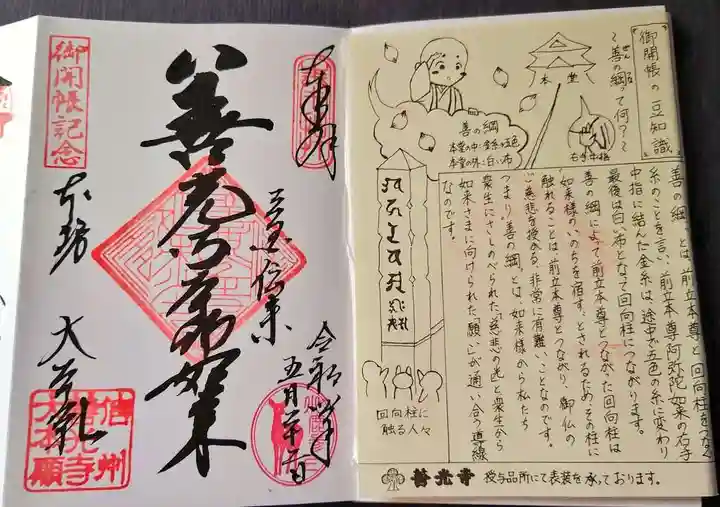 『御開帳の豆知識』
～善の綱って何？～
ぜん つな
本堂
善の綱
本堂の中:金糸・五色
本堂の外:白い布
右手中指
"善の綱"とは、前立本尊と回向柱をつなぐ
糸のことを言い、前立本尊阿弥陀如来の右手
中指に結んだ金糸は、途中で五色の糸に変わり
最後は白い布となって回向柱につながります。
善の綱によって前立本尊とつながった回向柱は
如来様のいのちを宿す。とされるため、その柱に
触れることは前立本尊とつながり、御仏の
ご慈悲を授かる、非常に有難いことなのです。
つまり"善の綱"とは、如来様から私たち
衆生にさしのべられた「慈悲の光」と衆生から
如来さまに向けられた「願い」が通い合う導線
なのです。
回向柱に
触る人々
善光寺 授与品所にて表装を承っております。
奉拝
八
善光寺如来
三国伝来
令和四年
五月二十五日
御開帳記念
本坊
大本願
信州
善光寺
大本願